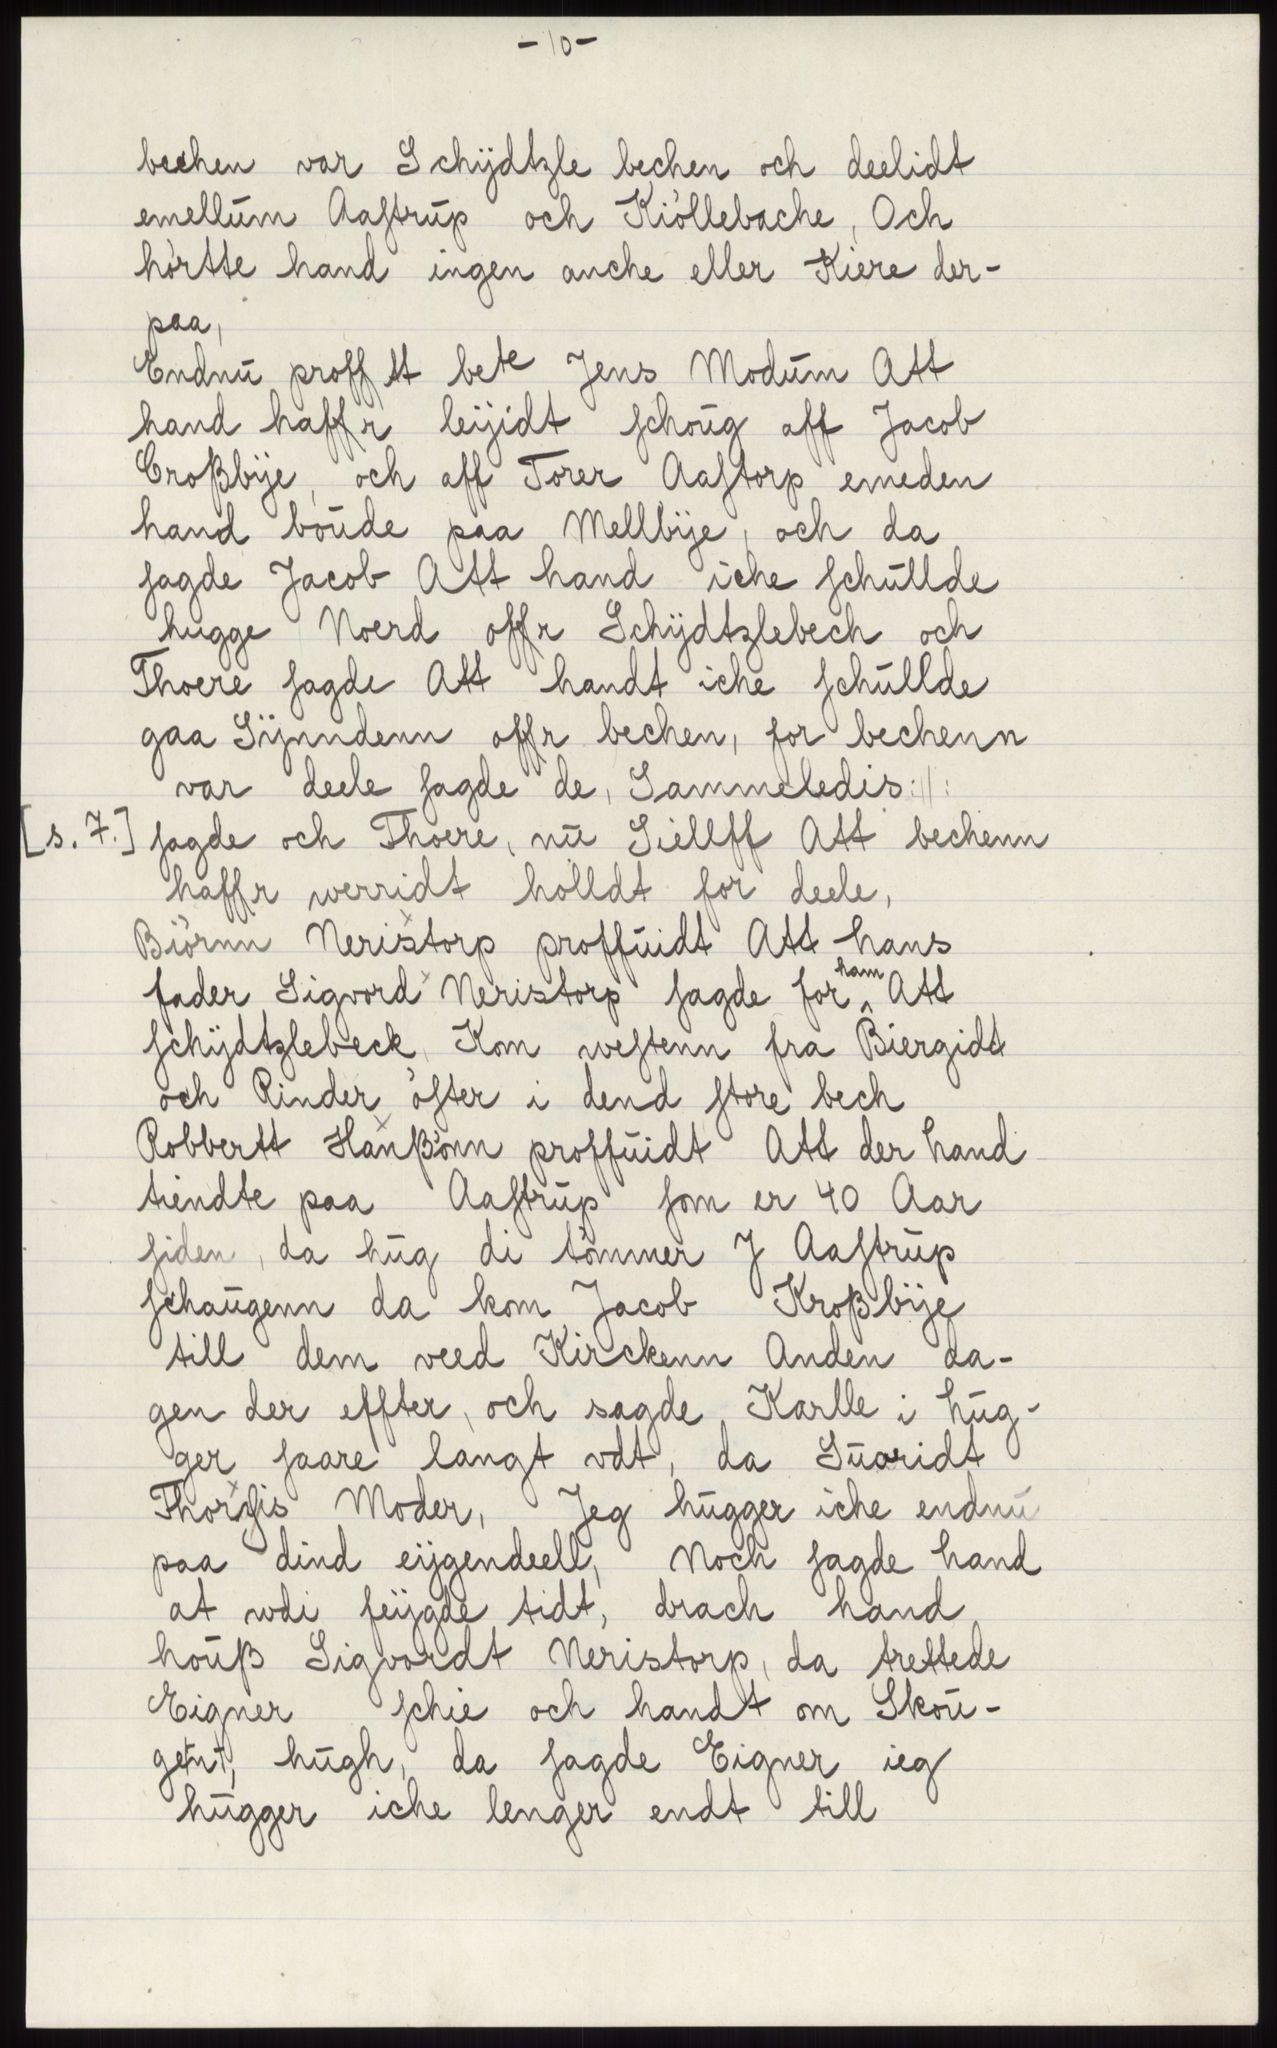 -10-
bechen var Schÿdtzle bechen och deelidt
emellūm Aastrūp och Kiöllebache, Och
hörtte hand ingen anche eller Kiere der-
paa,
Endnū proff tt bete Jens Modūm Att
hand haffr leÿidt schoūg aff Jacob
Croßbÿe, och aff Torer Aastorp emeden
hand boūde paa Mellbÿe, och da
sagde Jacob Att hand iche schūllde
hugge Noerd offr Schÿdtzlebech och
Thoere sagde Att handt iche schūllde
gaa Sÿnndenn offr bechen, for bechenn
var deele sagde de, Sammeledis://:
[s. 7.] sagde och Thoere, nū Siellff Att bechenn
haffr werridt holldt for deele,
Biörnn Neristorp proffūidt Att hans
fader Sigvord Neristorp sagde for ham Att
schÿdtzlebeck Kom westenn fra Biergidt
och Rinder öster i dend store bech
Robbertt Hanßönn proffūidt Att der hand
tiendte paa Aastrūp som er 40 Aar
siden, da hūg di tömmer J Aastrūp
schaūgenn da kom Jacob Kroßbÿe
till dem veed Kirckenn Anden da-
gen der effter, och sagde Karlle i hūg-
ger saare langt vdt, da Sūaridt
Thorgis Moder, Jeg hūgger iche endnū
paa dind eÿgendeell, Noch sagde hand
at wdi feÿgde tidt, drach hand
hoūß Sigvordt Neristorp, da trettede
Eigner schie och handt om Skoū-
gent, hūgh, da sagde Eigner ieg
hūgger iche lenger endt till